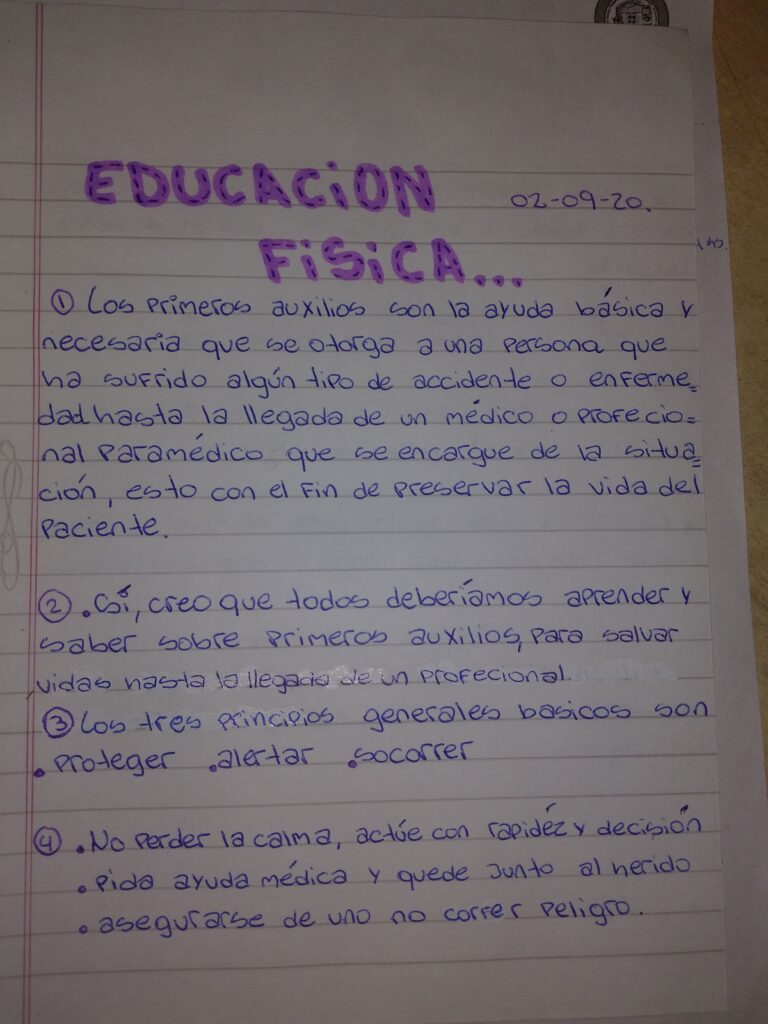 EDUCACiON 02-09-20.
FiSiCA...
① Los primeros auxilios son la ayuda básica y
necesaria que se otorga a una persona que
ha sufrido algún tipo de accidente o enferme=
dad hasta la llegada de un médico o profecio=
nal paramédico que se encargue de la situa=
ción, esto con el fin de preservar la vida del
paciente.
② .Sí, creo que todos deberíamos aprender y
saber sobre primeros auxilios, para salvar
vidas hasta la llegada de un profecional.
③ Los tres principios generales basicos son
• proteger .alertar .socorrer
④ • No perder la calma, actúe con rapidéz y decisión
• pida ayuda médica y quede junto al herido
• asegurarse de uno no correr peligro.